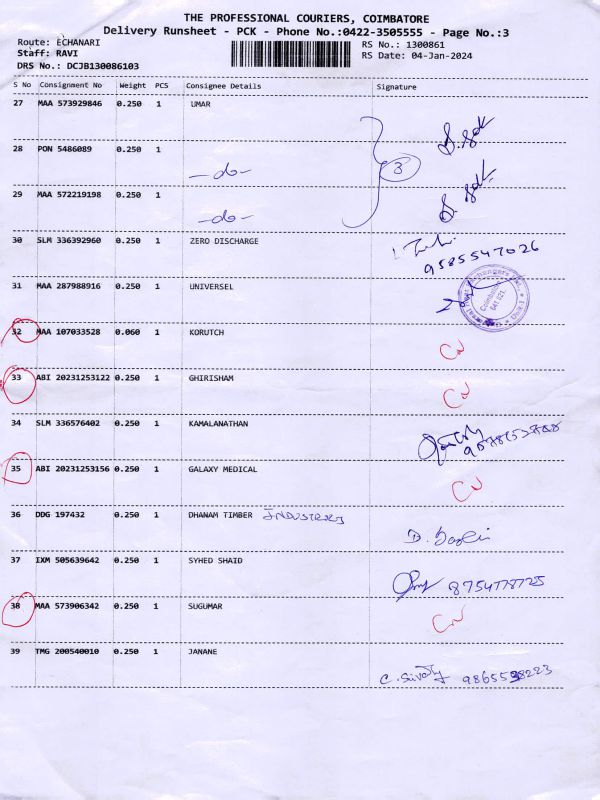 THE PROFESSIONAL COURIERS, COIMBATORE
Delivery Runsheet - PCK - Phone No.:0422-3505555 - Page No.:3
Route: ECHANARI RS No.: 1300861
Staff: RAVI RS Date: 04-Jan-2024
DRS No.: DCJB130086103
S No Consignment No Weight PCS Consignee Details Signature
27 MAA 573929846 0.250 1 UMAR
28 PON 5486089 0.250 1 -do- 3
29 MAA 572219198 0.250 1 -do-
30 SLM 336392960 0.250 1 ZERO DISCHARGE 9585547026
31 MAA 287988916 0.250 1 UNIVERSEL Coimbatore 641 021.
32 MAA 107033528 0.060 1 KORUTCH
33 ABI 20231253122 0.250 1 GHIRISHAM
34 SLM 336576402 0.250 1 KAMALANATHAN
35 ABI 20231253156 0.250 1 GALAXY MEDICAL
36 DDG 197432 0.250 1 DHANAM TIMBER INDUSTRIES D.
37 IXM 505639642 0.250 1 SYHED SHAID
38 MAA 573906342 0.250 1 SUGUMAR
39 TMG 200540010 0.250 1 JANANE C.